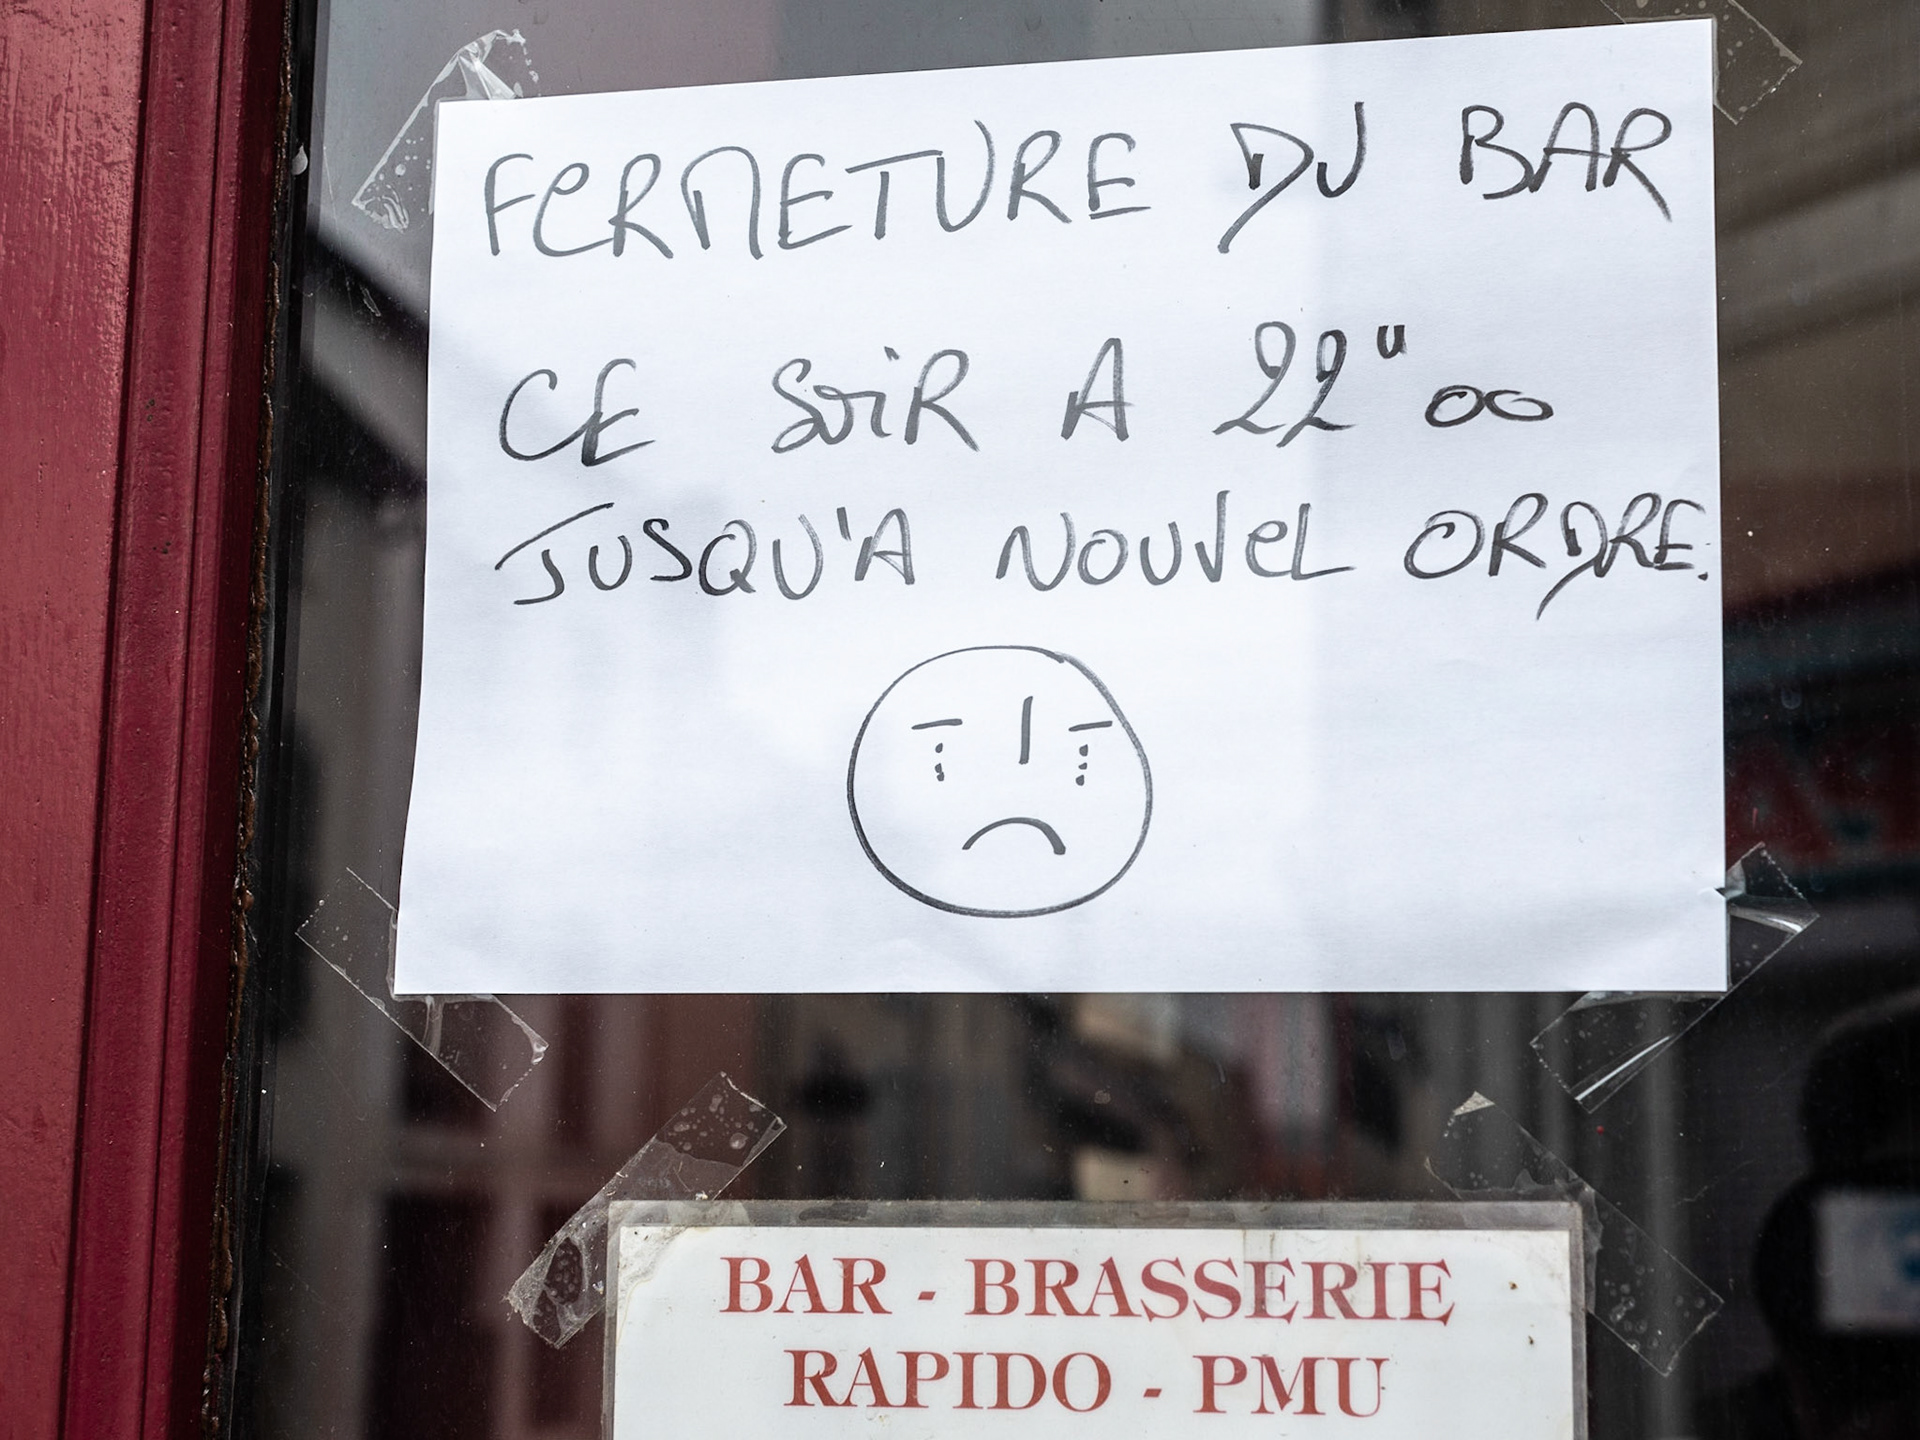 FERMETURE DU BAR
CE SOIR A 22H00
JUSQU'A NOUVEL ORDRE.
BAR - BRASSERIE
RAPIDO - PMU